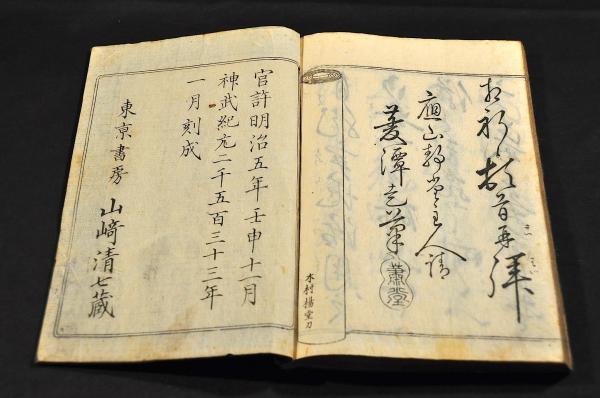 再拝
主人請
菱潭走筆 蕭堂
木村揚堂刀
官許明治五年壬申十一月
神武紀元二千五百三十三年
一月刻成
東京書房 山﨑清七蔵